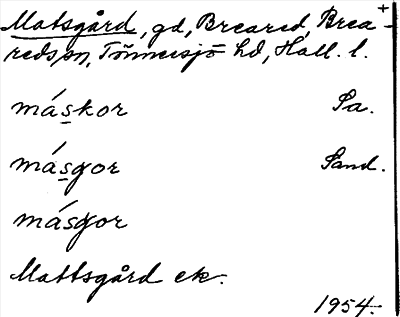 Matsgård, gd, Breared, Brea- +
reds sn, Tönnersjö hd, Hall. l.
máskor Sa.
másgor Sand.
másgor
Mattsgård ek.
1954.